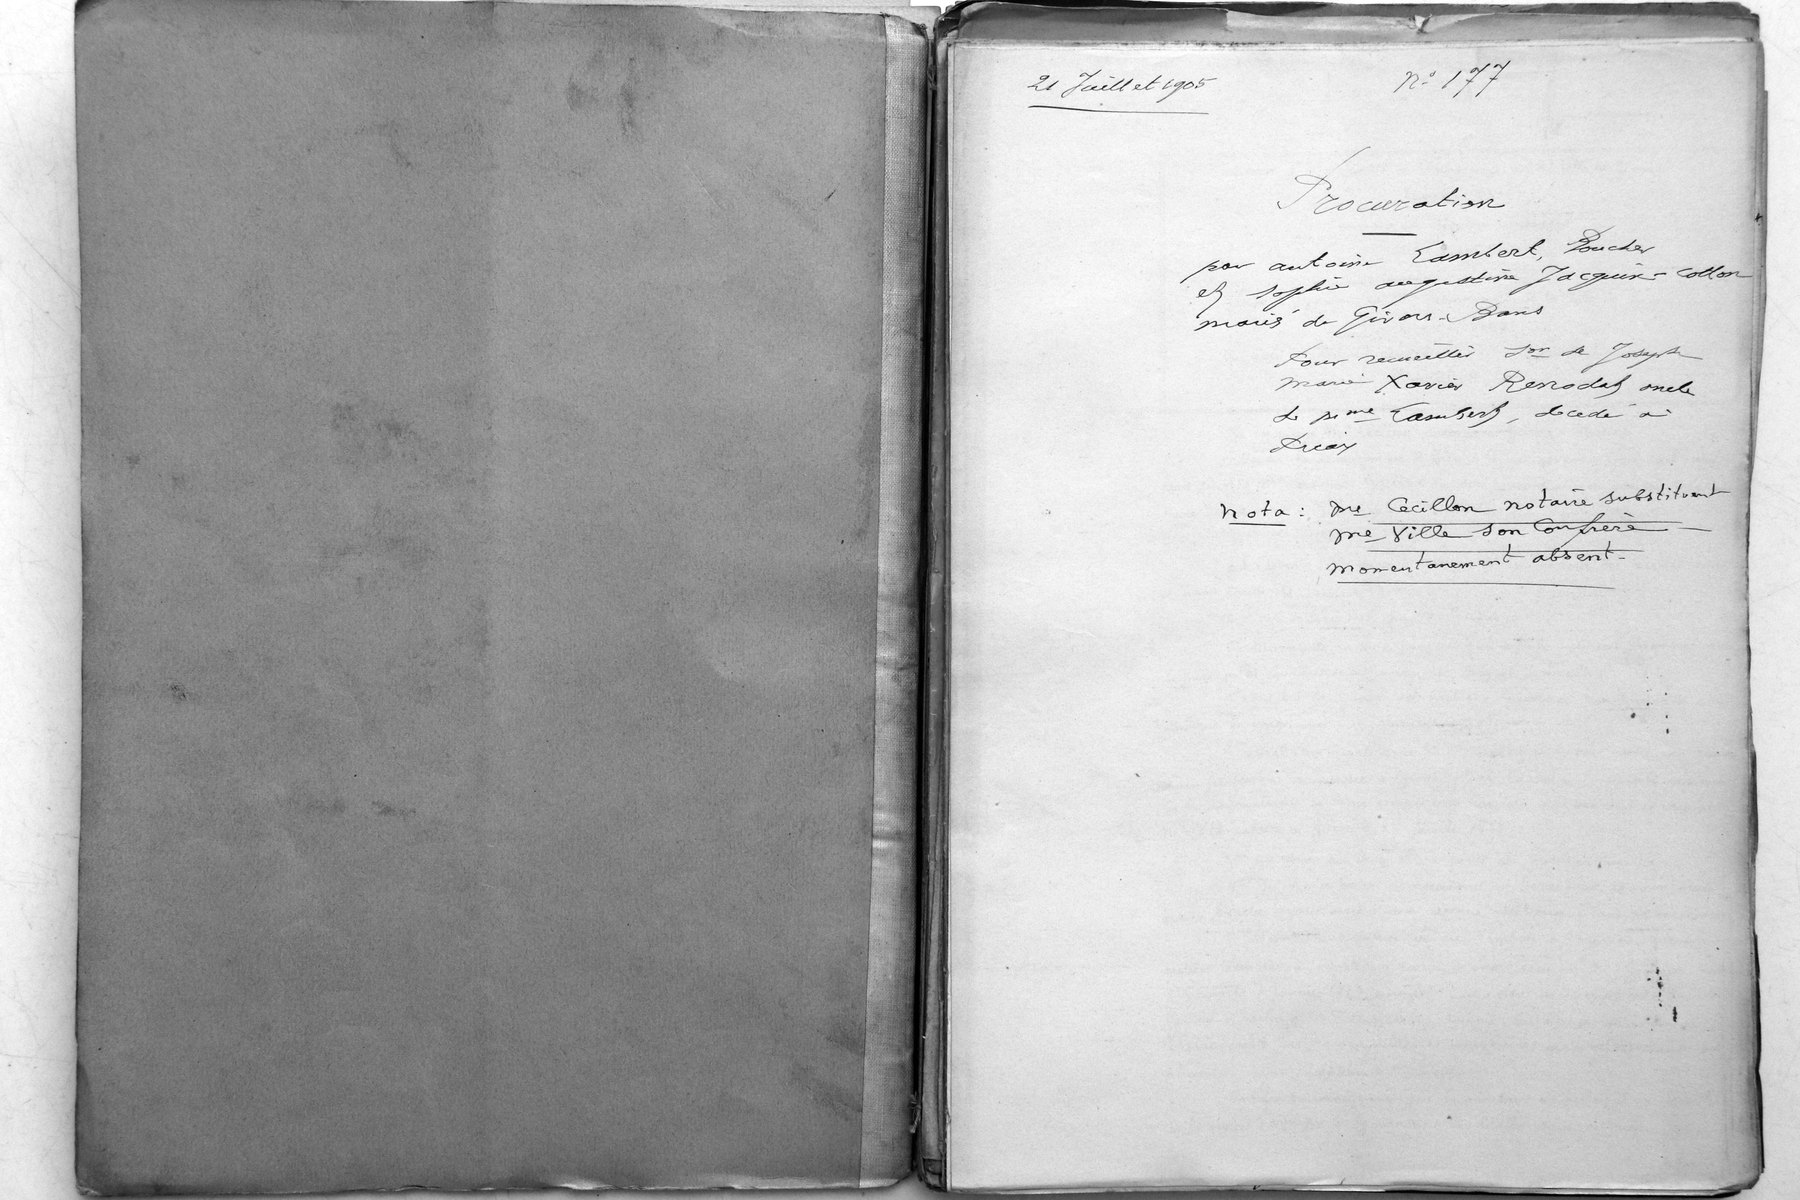 21 Juillet 1905
No 177
Procuration
par antoine Lambert, Boucher
et sophie augustine Jacquin-Collon
mariés de Givors-Bans
Pour recueillir son de Joseph
marie Xavier Renodat oncle
de Mme Lambert, décédé à
Nota : Me Cecillon notaire substituant
Me Ville son Confrère
momentanement absent-